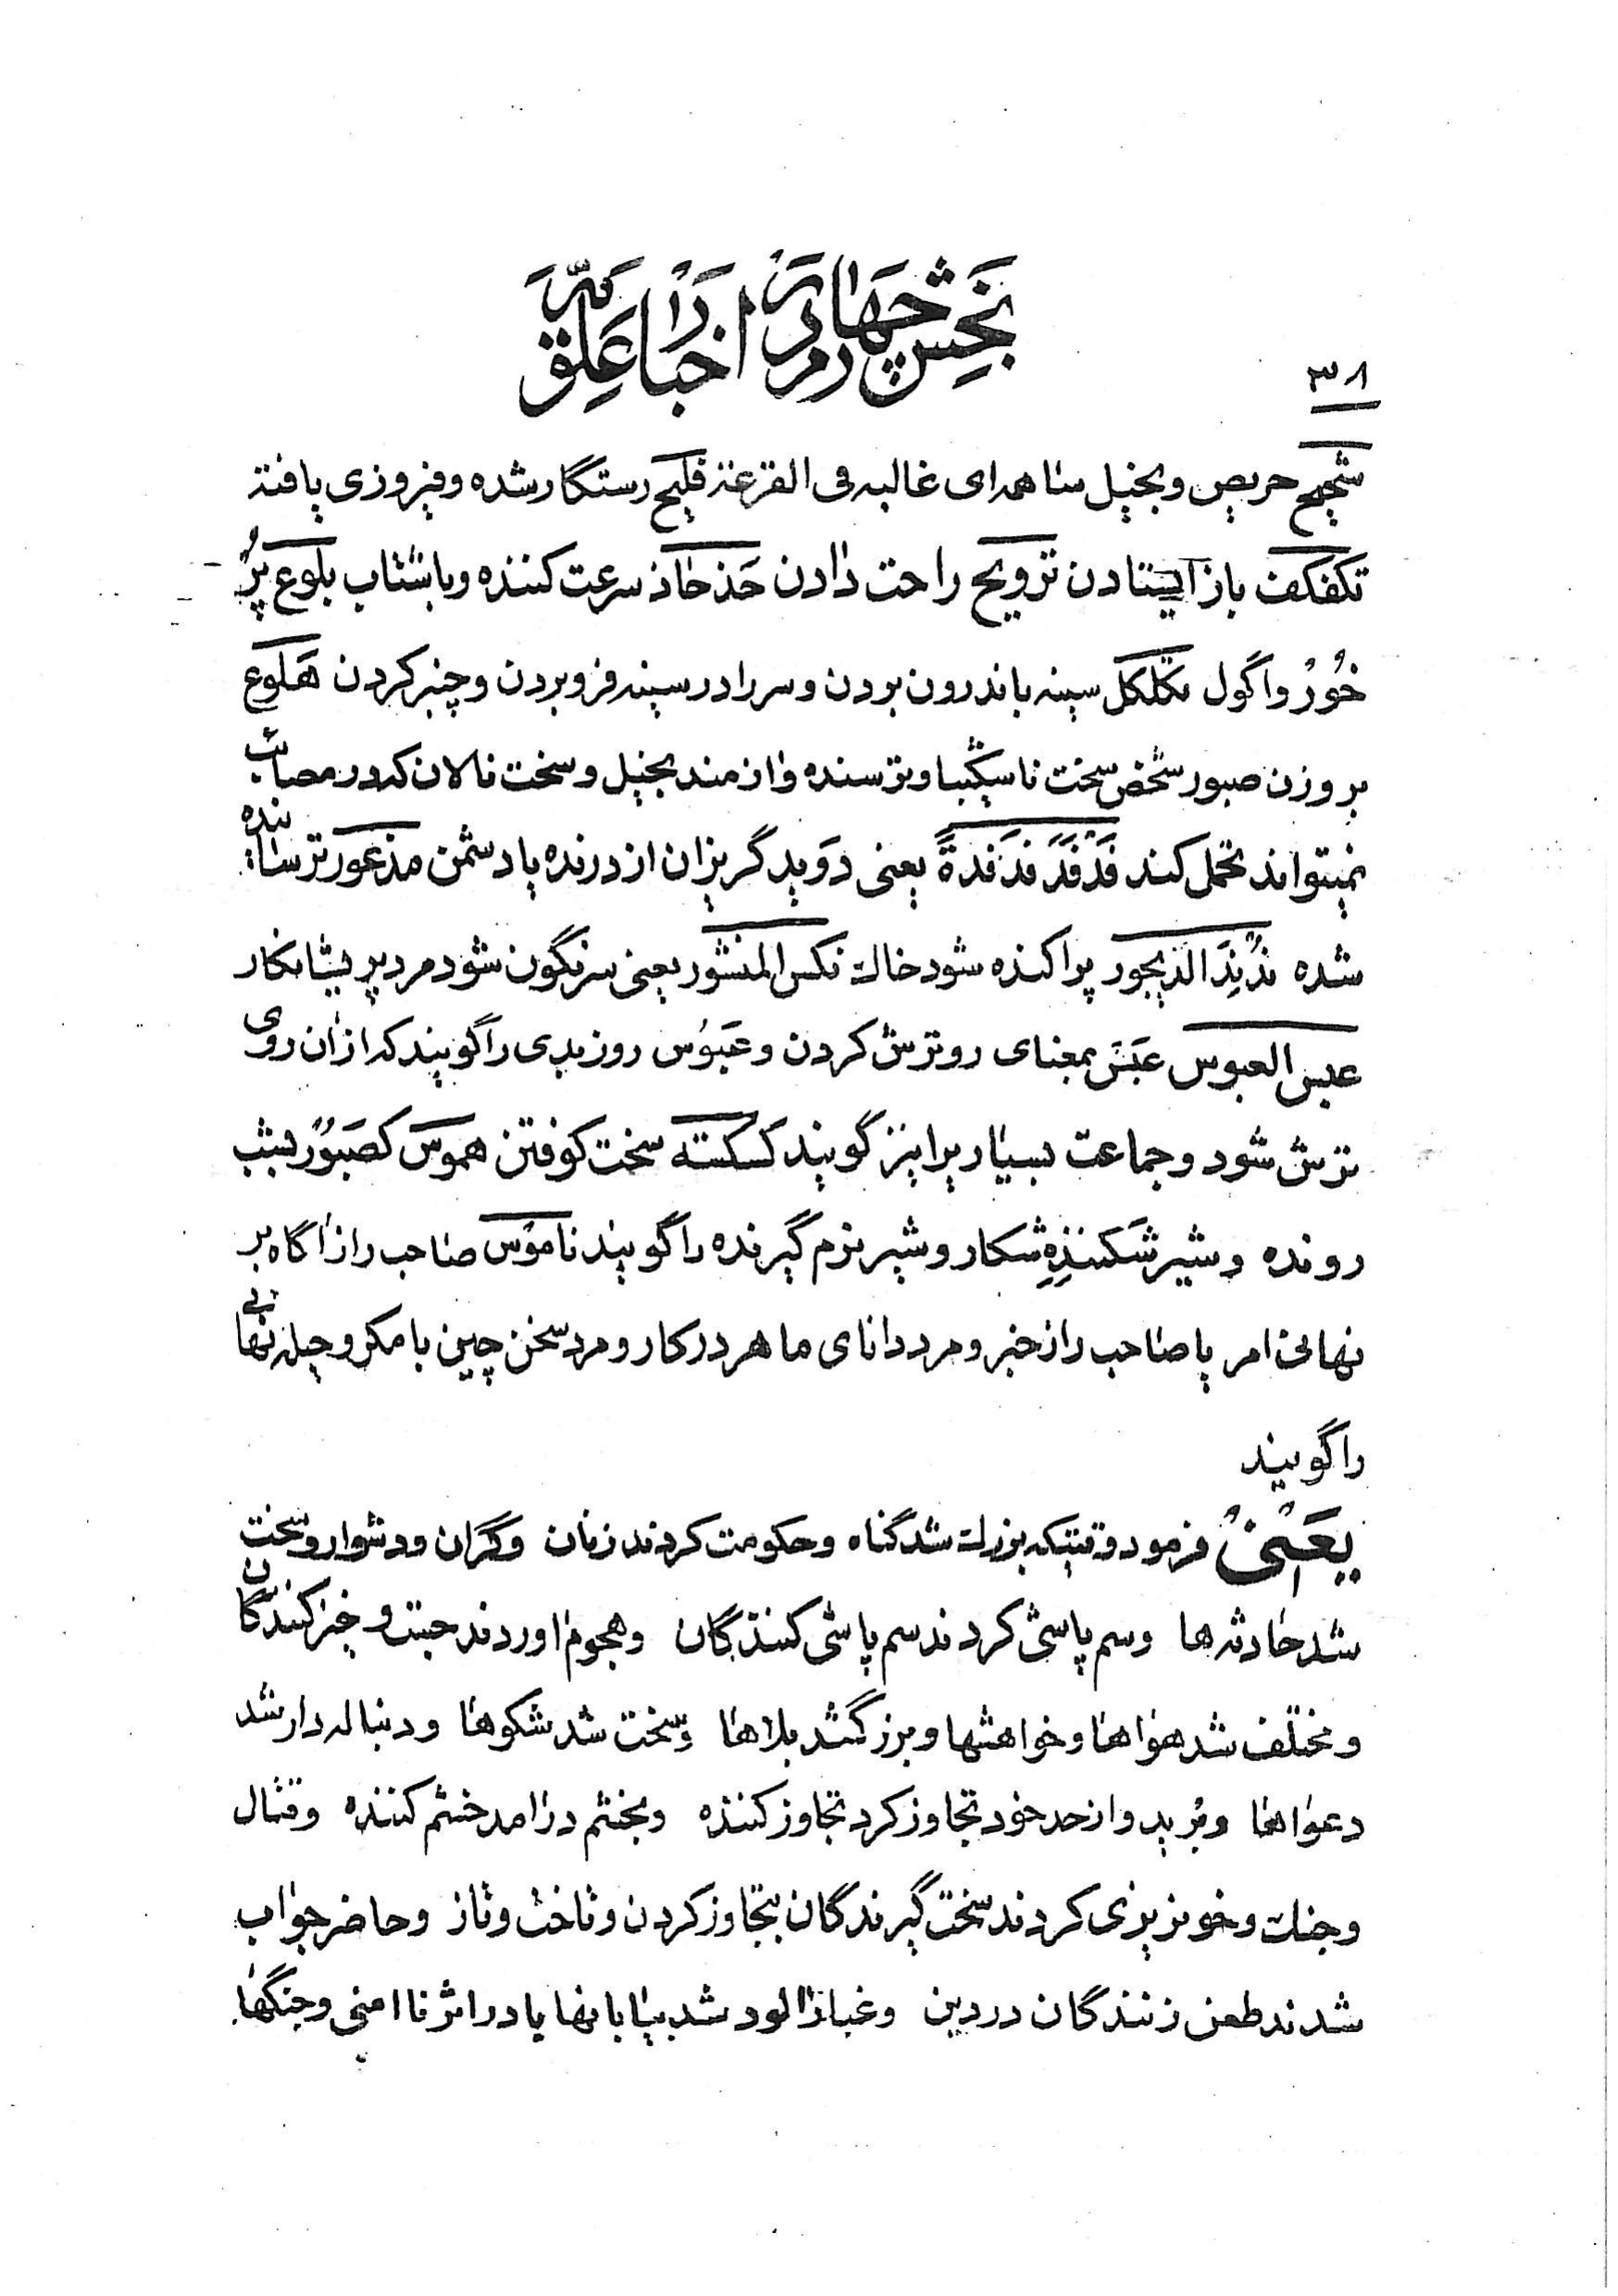 بخش چهارم در اخبار علویه
۳۸
شحیح حریص و بخیل ساهم ای غالب فی القرعة فلیح رستگار شده و فیروزی یافته
تکفکف باز ایستادن ترویح راحت دادن حَذحاذ سرعت کننده و باشتاب بلوع پُر
خُور واگول تکلکل سینه باندرون بردن و سر را در سینه فرو بردن و چنبر کردن هَلوع
بر وزن صبور شخص سخت ناشکیبا و ترسنده و ازمند بخیل و سخت نالان که در مصائب
نمیتواند تحمل کند فَدفَدَ فَدفَدةً یعنی دَوید گریزان از درنده یا دشمن مذعور ترسانده
شده نُدِیَد الدیجور پراکنده شود خاک نکس المنشور یعنی سرنگون شود مرد پریشانکار
عبس العبوس عَبَسَ بمعنای رو ترش کردن و عَبوُس روز بدی را گویند که از ان روی
ترش شود و جماعت بسیار را نیز گویند کسکسته سخت کوفتن هموس کصَبوُر بشب
رونده و شیر شکننده‌ِ شکار و شیر نرم گیرنده را گویند ناموُس صاحب راز اگاه بر
نهانی امر یا صاحب راز خبر و مرد دانای ماهر در کار و مرد سخن چین با مکر و حیله نهانی
را گویند
یَعنی فرمود وقتیکه بزرك شد گناه و حکومت کردند زنان و گران و دشوار و سخت
شد حادثه‌ها و سم پاشی کردند سم پاشی کنندگان و هجوم اوردند جست و خیز کنندگان
و مختلف شد هواها و خواهشها و بزرگ شد بلاها و سخت شد شکوه‌ها و دنباله دار شد
دعواها و بُرید و از حد خود تجاوز کرد تجاوز کننده و بخشم درامد خشم کننده و قتال
و جنك و خونریزی کردند سخت گیرندگان بتجاوز کردن و تاخت و تاز و حاضر جواب
شدند طعن زنندگان در دین و غبار الود شد بیابانها یا در اثر ناامنی و جنگها